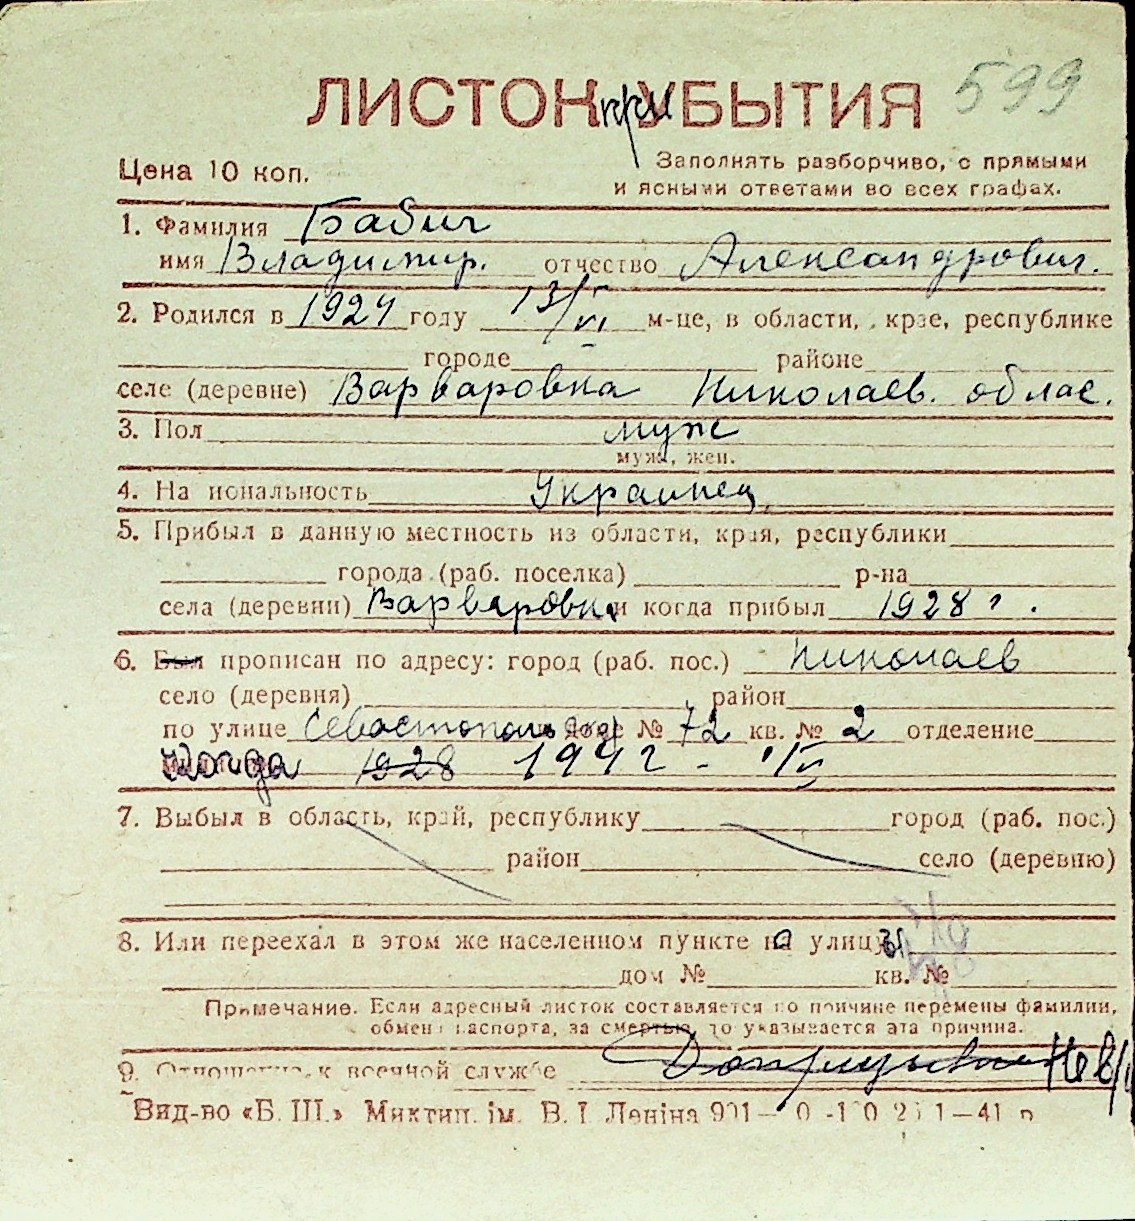 ЛИСТОК при УБЫТИЯ 599
Цена 10 коп.
Заполнять разборчиво, с прямыми
и ясными ответами во всех графах.
1. Фамилия Бабич
имя Владимир. отчество Александрович.
2. Родился в 1924 году 13/VI м-це, в области, крае, республике
городе районе
селе (деревне) Варваровка Николаев. облас.
3. Пол муж
муж., жен.
4. Национальность Украинец
5. Прибыл в данную местность из области, края, республики
города (раб. поселка) р-на
села (деревни) Варваровка и когда прибыл 1928 г.
6. Был прописан по адресу: город (раб. пос.) Николаев
село (деревня) район
по улице Севастополь доме № 72 кв. № 2 отделение
Когда 1928 1941
7. Выбыл в область, край, республику город (раб. пос.)
район село (деревню)
8. Или переехал в этом же населенном пункте на улицу
дом № кв. №
Примечание. Если адресный листок составляется по причине перемены фамилии,
обмена паспорта, за смертью, то указывается эта причина.
9. Отношение к военной службе Допризывник Нев/
Вид-во «Б. Ш.» Миктип. ім. В. І. Леніна